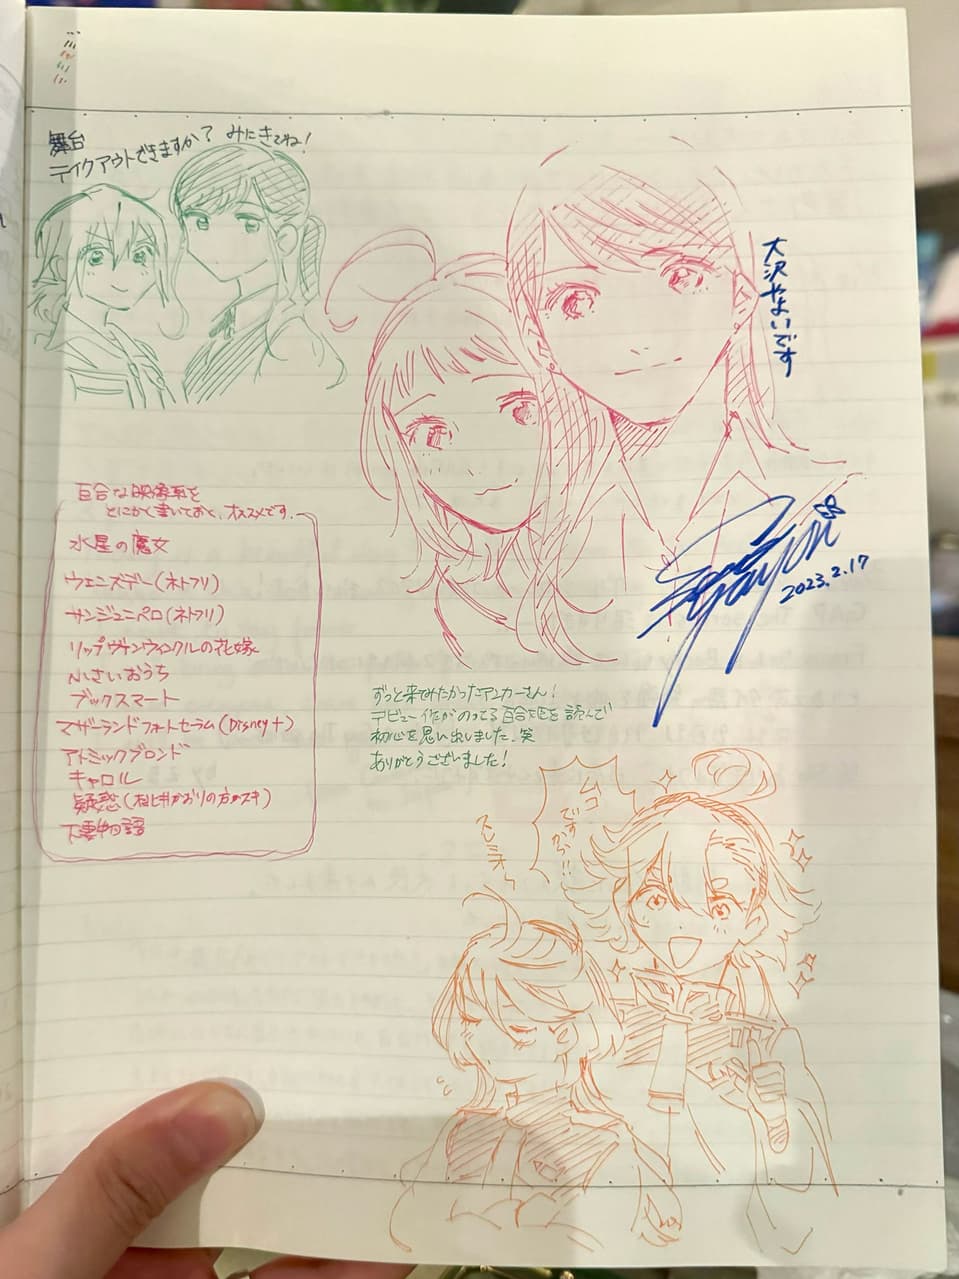 舞台
テイクアウトできますか？ みにきてね！
大沢やよいです
Yayoi
2023.2.17
百合な映像車を
とにかく書いておく、オススメです。
水星の魔女
ウェンズデー（ネトフリ）
サンジュニペロ（ネトフリ）
リップヴァンウィンクルの花嫁
小さいおうち
ブックスマート
マザーランドフォートセーラム（Disney＋）
アトミックブロンド
キャロル
疑惑（桃井かおりの方がスキ）
下妻物語
ずっと来てみたかったアンカーさん！
デビュー作がのってる百合姫を読んで
初心を思い出しました。笑
ありがとうございました！
ムコ
ですから!!
スレミオ〜